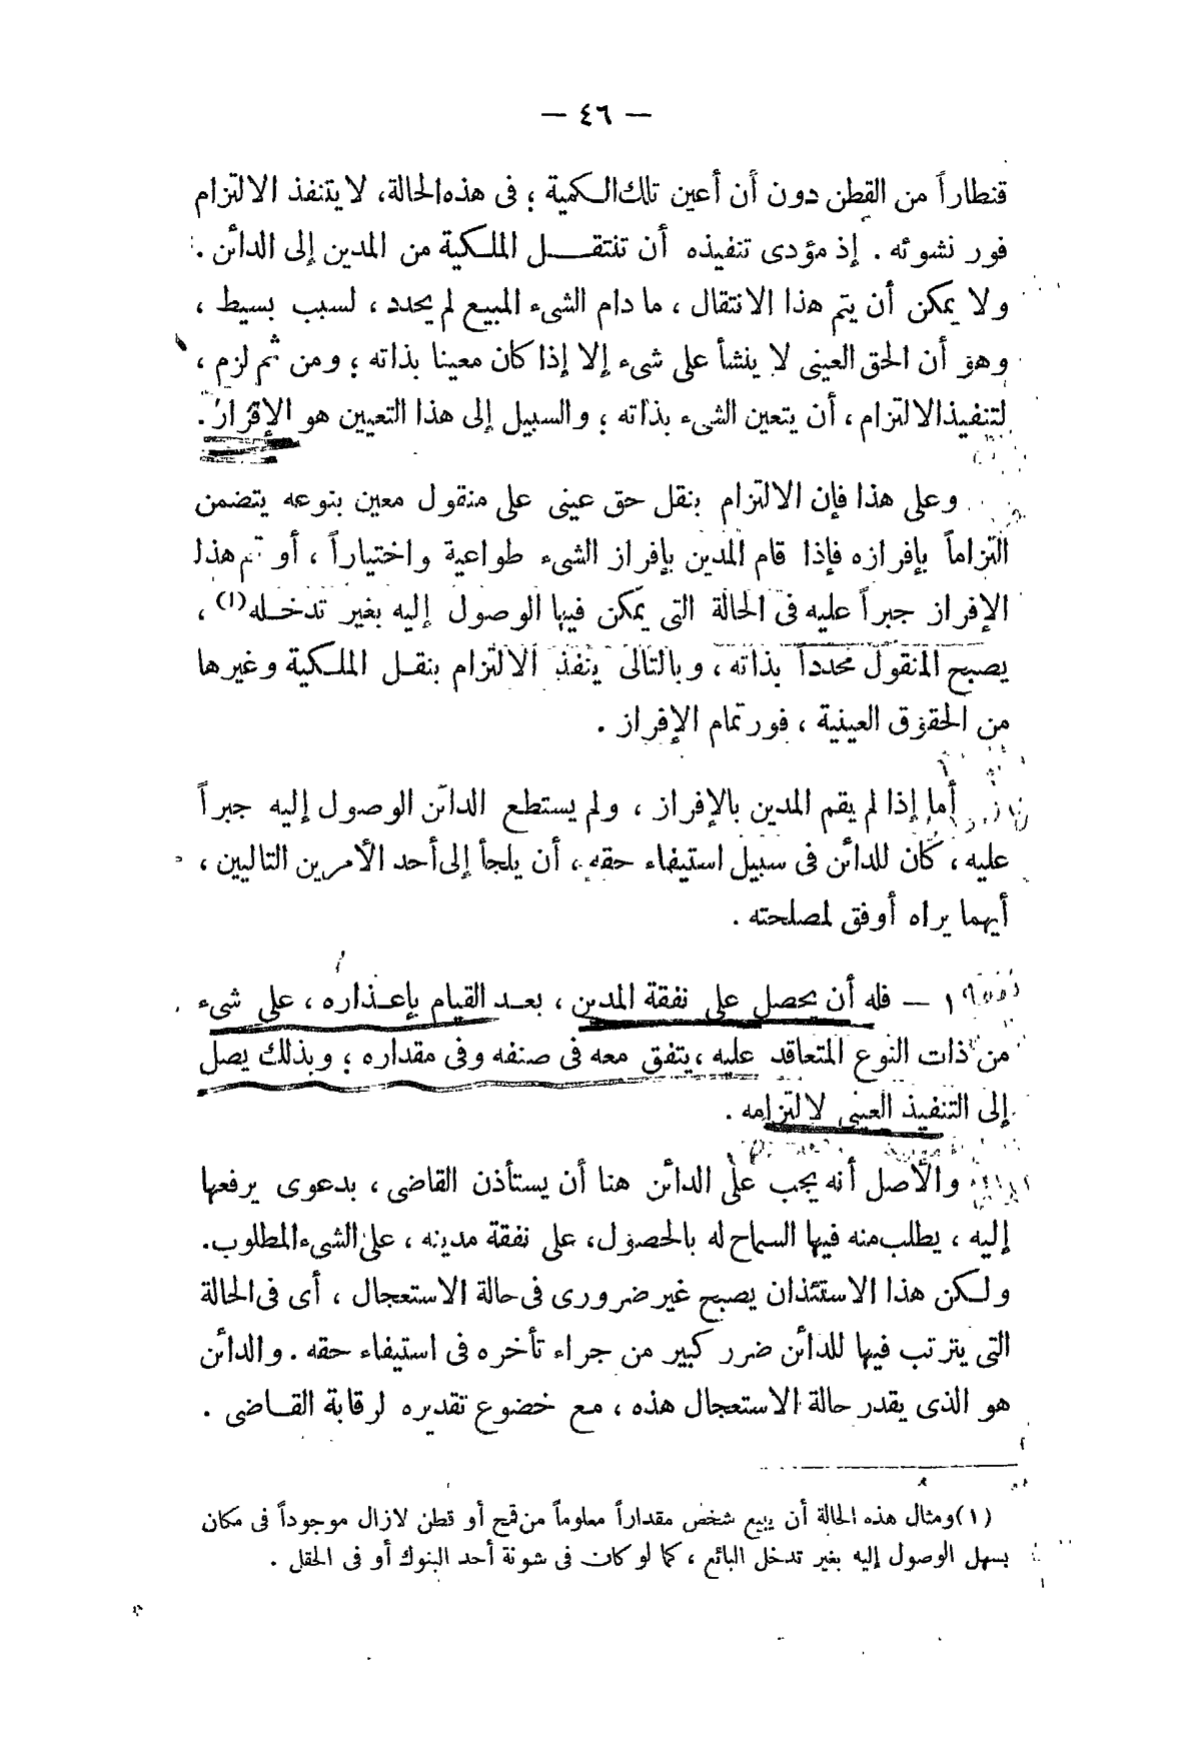 — ٤٦ —
قنطاراً من القطن دون أن أعين تلك الكمية ؛ فى هذه الحالة، لا يتنفذ الالتزام
فور نشوئه . إذ مؤدى تنفيذه أن تنتقـــل الملكية من المدين إلى الدائن .
ولا يمكن أن يتم هذا الانتقال ، ما دام الشىء المبيع لم يحدد ، لسبب بسيط ،
وهو أن الحق العينى لا ينشأ على شىء إلا إذا كان معينا بذاته ؛ ومن ثم لزم ،
لتنفيذ الالتزام ، أن يتعين الشىء بذاته ؛ والسبيل إلى هذا التعيين هو الإقرار .
وعلى هذا فإن الالتزام بنقل حق عينى على منقول معين بنوعه يتضمن
التزاماً بإفرازه فإذا قام المدين بإفراز الشىء طواعية واختياراً ، أو تم هذا
الإفراز جبراً عليه فى الحالة التى يمكن فيها الوصول إليه بغير تدخله(١) ،
يصبح المنقول محدداً بذاته ، وبالتالى ينفذ الالتزام بنقل الملكية وغيرها
من الحقوق العينية ، فور تمام الإفراز .
أما إذا لم يقم المدين بالإفراز ، ولم يستطع الدائن الوصول إليه جبراً
عليه ، كان للدائن فى سبيل استيفاء حقه ، أن يلجأ إلى أحد الأمرين التاليين ،
أيهما يراه أوفق لمصلحته .
١ — فله أن يحصل على نفقة المدين ، بعد القيام بإعذاره ، على شىء
من ذات النوع المتعاقد عليه ، يتفق معه فى صنفه وفى مقداره ؛ وبذلك يصل
إلى التنفيذ العينى لالتزامه .
والأصل أنه يجب على الدائن هنا أن يستأذن القاضى ، بدعوى يرفعها
إليه ، يطلب منه فيها السماح له بالحصول، على نفقة مدينه ، على الشىء المطلوب.
ولكن هذا الاستئذان يصبح غير ضرورى فى حالة الاستعجال ، أى فى الحالة
التى يترتب فيها للدائن ضرر كبير من جراء تأخره فى استيفاء حقه . والدائن
هو الذى يقدر حالة الاستعجال هذه ، مع خضوع تقديره لرقابة القاضى .
(١) ومثال هذه الحالة أن يبيع شخص مقداراً معلوماً من قمح أو قطن لازال موجوداً فى مكان
يسهل الوصول إليه بغير تدخل البائع ، كما لو كان فى شونة أحد البنوك أو فى الحقل .